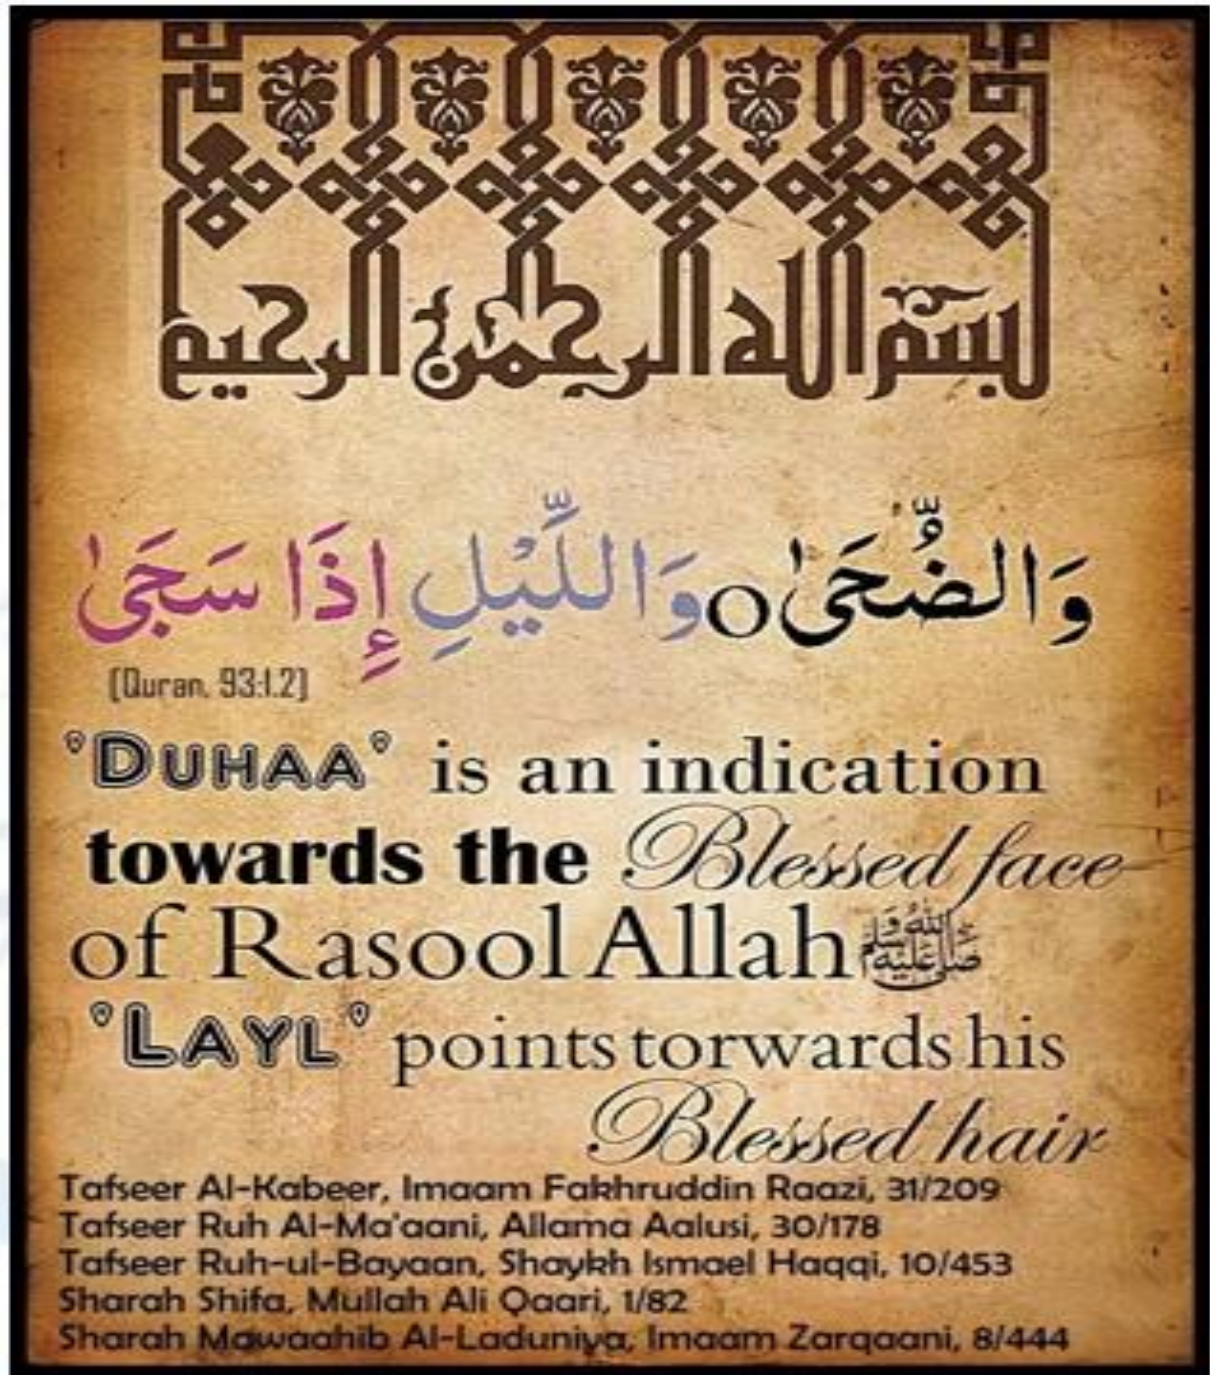 بسم الله الرحمن الرحيم
وَالضُّحَىٰ o وَاللَّيْلِ إِذَا سَجَىٰ
(Quran. 93:1.2)
"DUHAA" is an indication
towards the Blessed face
of Rasool Allah ﷺ
"LAYL" points torwards his
Blessed hair
Tafseer Al-Kabeer, Imaam Fakhruddin Raazi, 31/209
Tafseer Ruh Al-Ma'aani, Allama Aalusi, 30/178
Tafseer Ruh-ul-Bayaan, Shaykh Ismael Haqqi, 10/453
Sharah Shifa, Mullah Ali Qaari, 1/82
Sharah Mawaahib Al-Laduniya, Imaam Zarqaani, 8/444